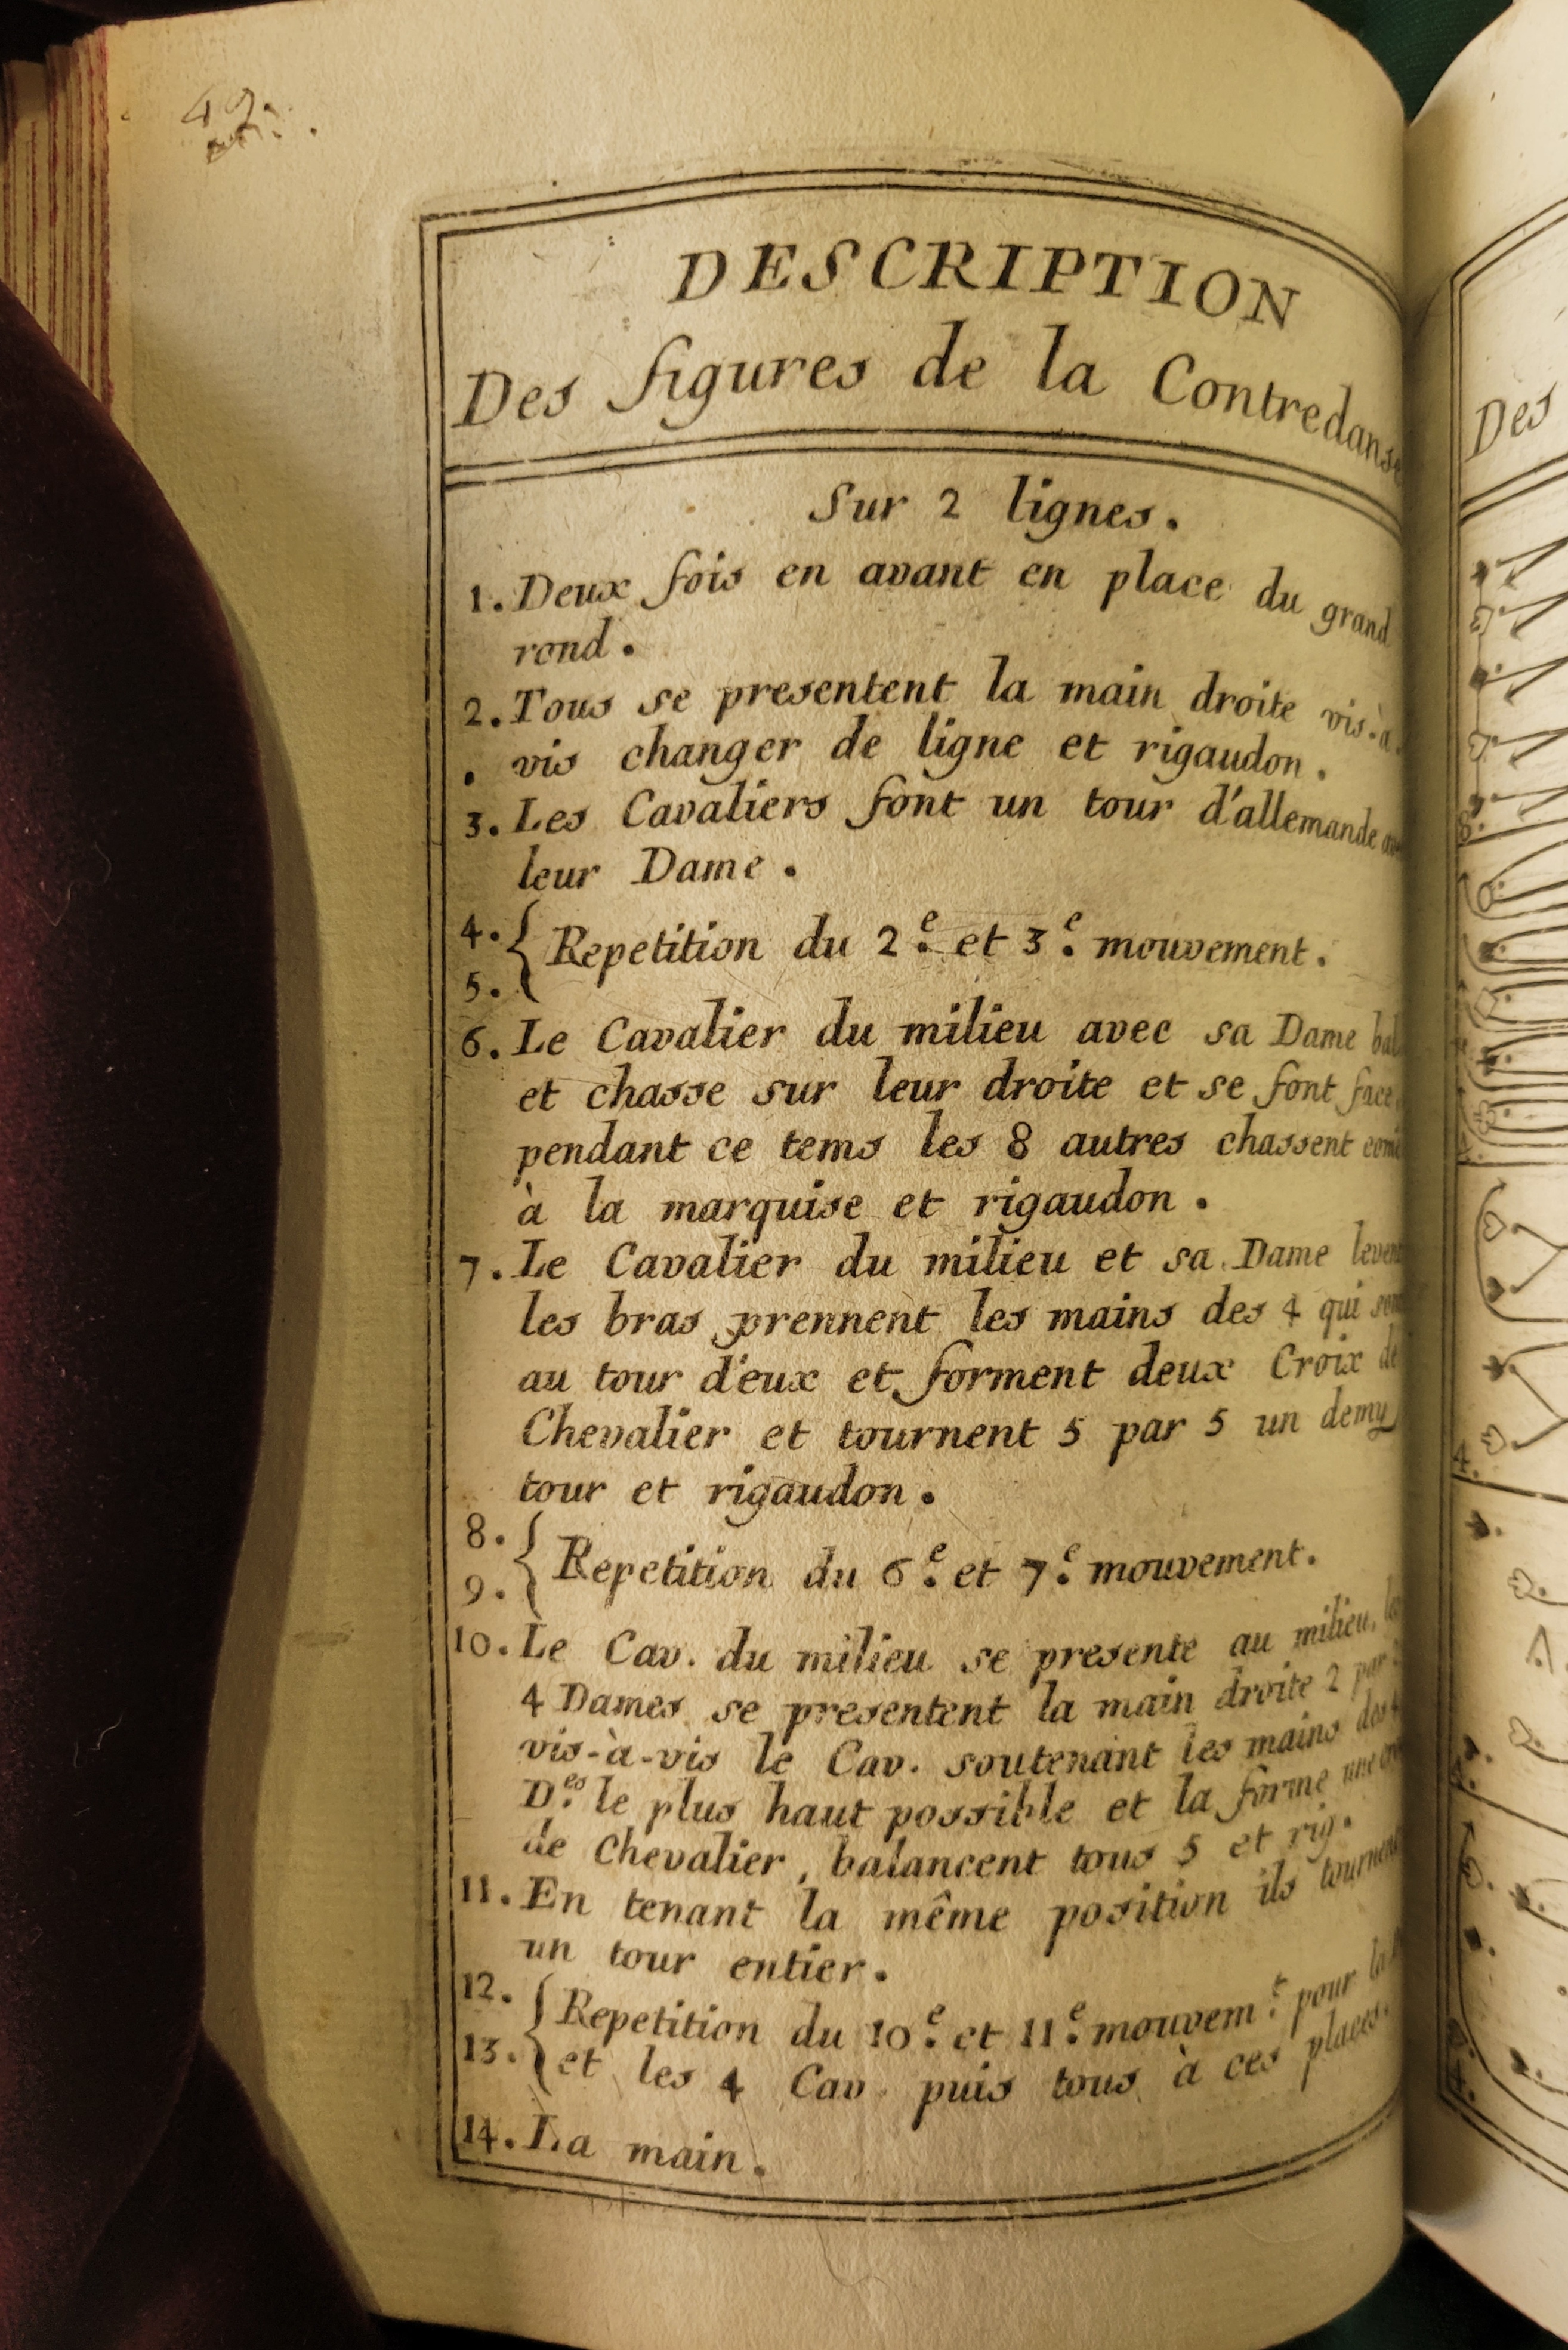 49.
DESCRIPTION
Des figures de la Contredanse
Sur 2 lignes.
1. Deux fois en avant en place du grand
rond.
2. Tous se presentent la main droite vis-à-
. vis changer de ligne et rigaudon.
3. Les Cavaliers font un tour d'allemande
leur Dame.
4. { Repetition du 2.e et 3.e mouvement.
5.
6. Le Cavalier du milieu avec sa Dame bal
et chasse sur leur droite et se font face
pendant ce tems les 8 autres chassent
à la marquise et rigaudon.
7. Le Cavalier du milieu et sa Dame levent
les bras prennent les mains des 4 qui
au tour d'eux et forment deux Croix de
Chevalier et tournent 5 par 5 un demy
tour et rigaudon.
8. { Repetition du 6.e et 7.e mouvement.
9.
10. Le Cav. du milieu se presente au milieu,
4 Dames se presentent la main droite 2 par
vis-à-vis le Cav. soutenant les mains des
D.es le plus haut possible et la forme une
de Chevalier, balancent tous 5 et rig.
11. En tenant la même position ils tournent
un tour entier.
12. { Repetition du 10.e et 11.e mouvem.t pour la
13. et les 4 Cav. puis tous à ces places.
14. La main.
Des